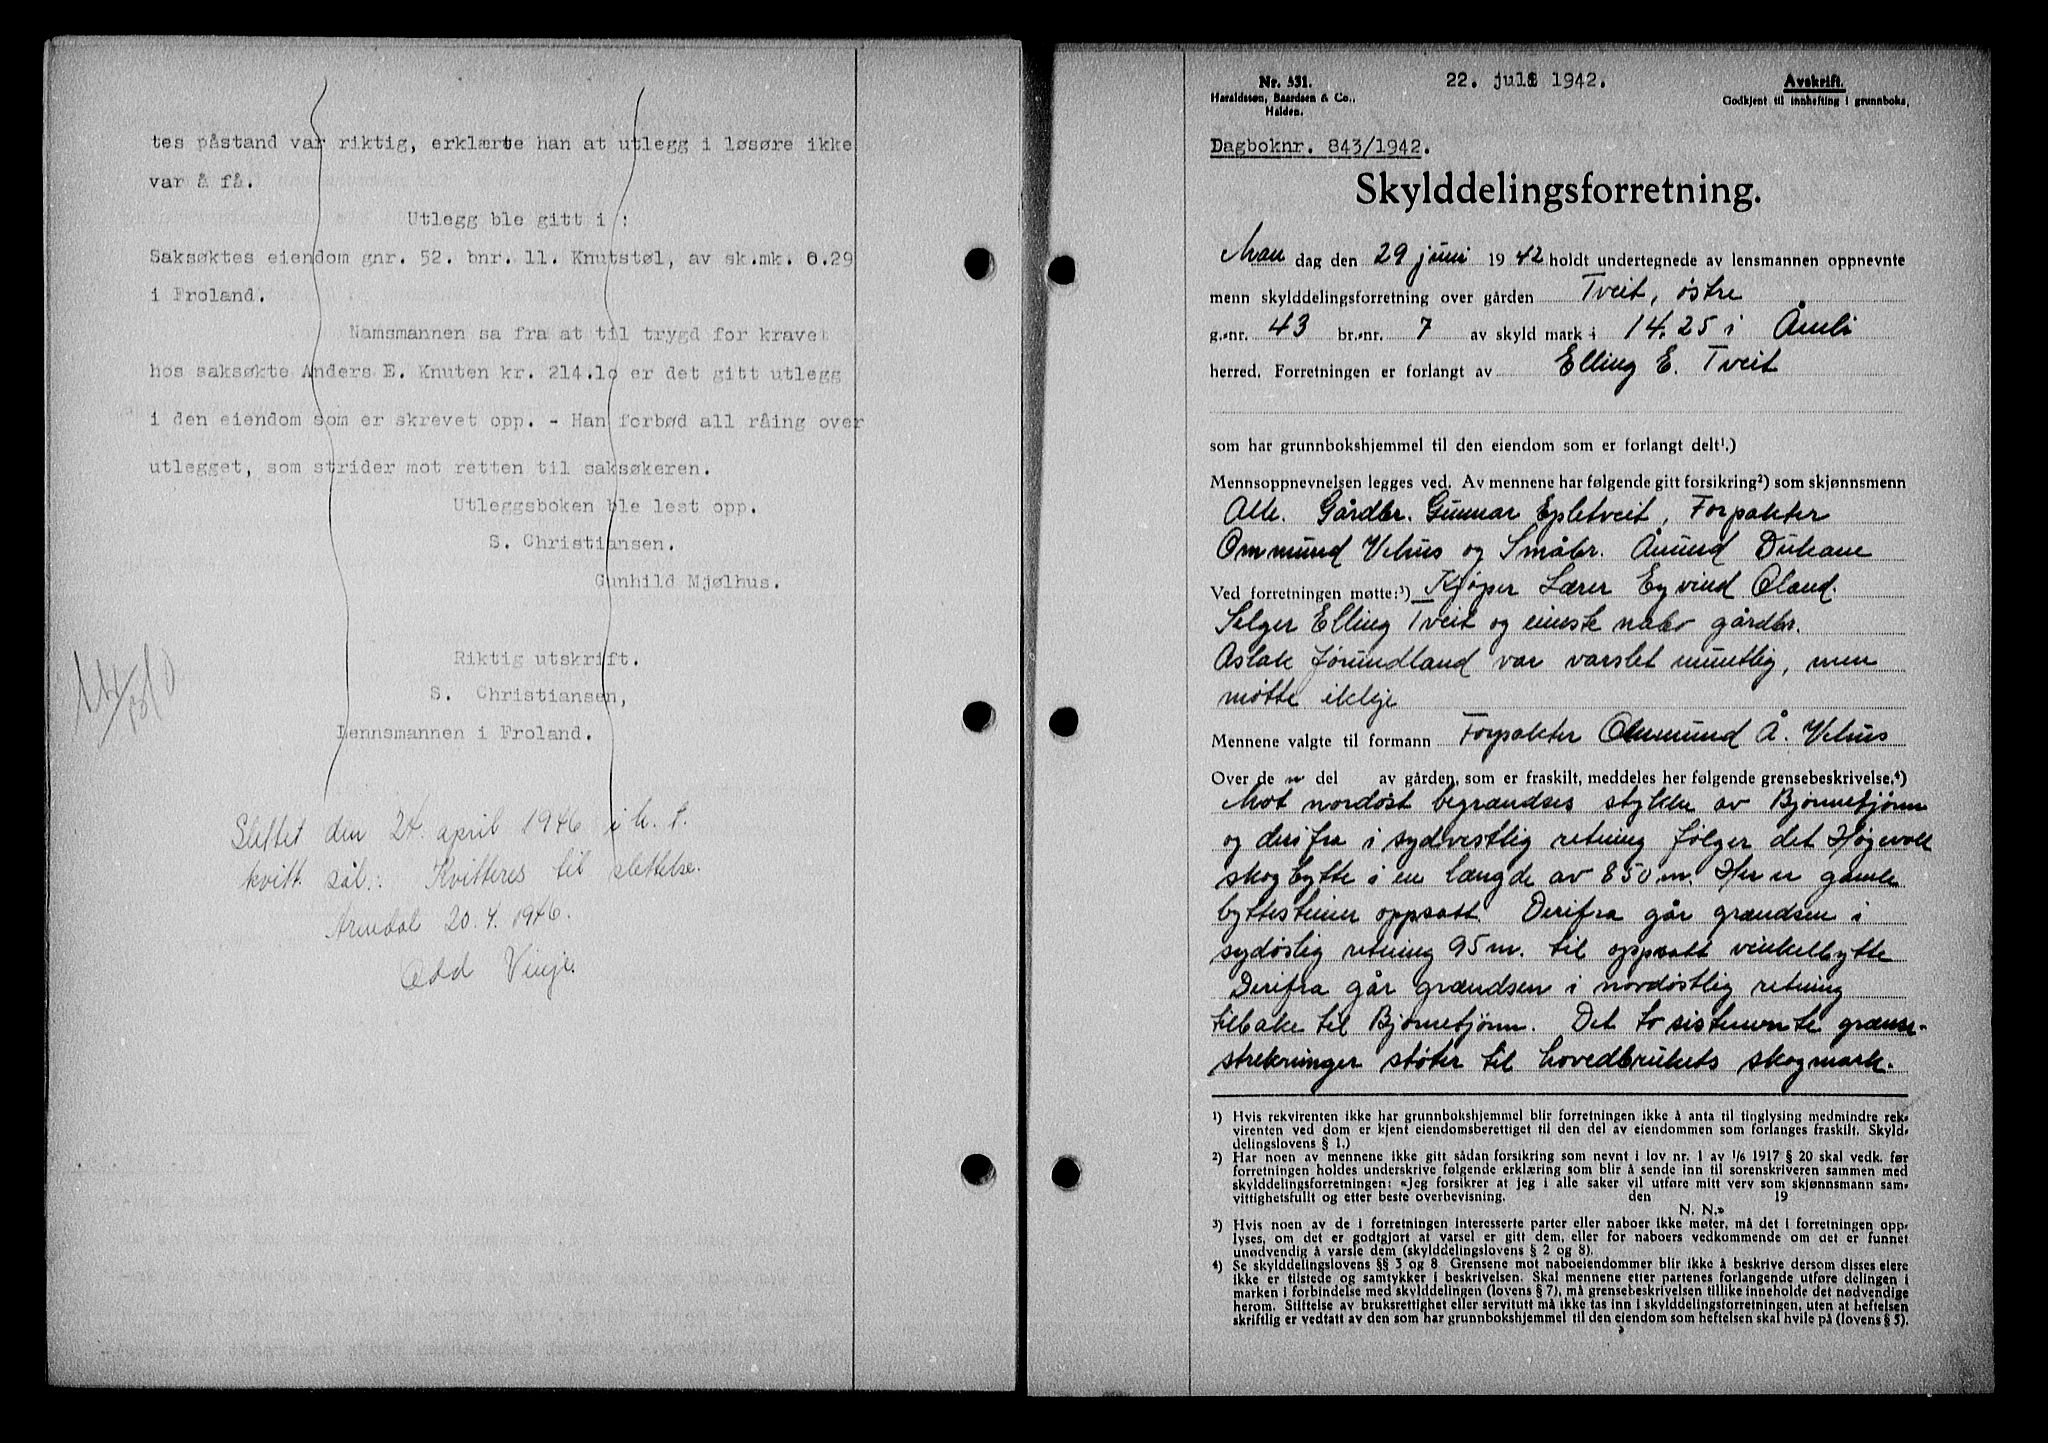 tes påstand var riktig, erklærte han at utlegg i løsøre ikke
var å få.
Utlegg ble gitt i :
Saksøktes eiendom gnr. 52. bnr. 11. Knutstøl, av sk.mk. 0.29
i Froland.
Namsmannen sa fra at til trygd for kravet
hos saksøkte Anders E. Knuten kr. 214.10 er det gitt utlegg
i den eiendom som er skrevet opp. - Han forbød all råing over
utlegget, som strider mot retten til saksøkeren.
Utleggsboken ble lest opp.
S. Christiansen.
Gunhild Mjølhus.
Riktig utskrift.
S. Christiansen,
Lennsmannen i Froland.
Slettet den 24. april 1946 i h. t.
kvitt. sål.: Kvitteres til slettelse.
Arendal 20.4.1946.
Odd Vinje.
Nr. 531.
Haraldssøn, Baardsen & Co.,
Halden.
22. juli 1942.
Avskrift.
Godkjent til innhefting i grunnboka,
Dagboknr. 843/1942.
Skylddelingsforretning.
Man dag den 29 juni 1942 holdt undertegnede av lensmannen oppnevnte
menn skylddelingsforretning over gården Tveit, østre
g.-nr. 43 br.-nr. 7 av skyld mark i 14.25 i Åmli
herred. Forretningen er forlangt av Elling E. Tveit
som har grunnbokshjemmel til den eiendom som er forlangt delt¹.)
Mennsoppnevnelsen legges ved. Av mennene har følgende gitt forsikring²) som skjønnsmenn
Alle. Gårdbr. Gunnar Epletveit, Forpakter
Ommund Vehus og Småbr. Åmund Dukane
Ved forretningen møtte:³) Kjøper Lærer Eyvind Oland.
Selger Elling Tveit og eineste nabo gårdbr.
Aslak Jørundland var varslet muntlig, men
møtte ikkje
Mennene valgte til formann Forpakter Ommund Å. Vehus
Over de n del av gården, som er fraskilt, meddeles her følgende grensebeskrivelse.⁴)
Mot nordøst begrændses stykke av Bjønnetjønn
og derifra i sydvestlig retning følger det Høgevoll
skogbytte i en længde av 850 m. Her er gamle
byttesteiner oppsatt. Derifra går grændsen i
sydøslig retning 95 m. til oppsatt vinkelbytte
Derifra går grændsen i nordøstlig retning
tilbake til Bjønnetjønn. Det to sistnevnte grænse-
strekninger støter til hovedbrukets skogmark.
¹) Hvis rekvirenten ikke har grunnbokshjemmel blir forretningen ikke å anta til tinglysing medmindre rek-
virenten ved dom er kjent eiendomsberettiget til den del av eiendommen som forlanges fraskilt. Skyld-
delingslovens § 1.)
²) Har noen av mennene ikke gitt sådan forsikring som nevnt i lov nr. 1 av 1/6 1917 § 20 skal vedk. før
forretningen holdes underskrive følgende erklæring som blir å sende inn til sorenskriveren sammen med
skylddelingsforretningen: «Jeg forsikrer at jeg i alle saker vil utføre mitt verv som skjønnsmann sam-
vittighetsfullt og etter beste overbevisning. den 19
N. N.»
³) Hvis noen av de i forretningen interesserte parter eller naboer ikke møter, må det i forretningen opp-
lyses, om det er godtgjort at varsel er gitt dem, eller for naboers vedkommende om det er funnet
unødvendig å varsle dem (skylddelingslovens § 2 og 8).
⁴) Se skylddelingslovens §§ 3 og 8. Grensene mot naboeiendommer blir ikke å beskrive dersom disses eiere
ikke er tilstede og samtykker i beskrivelsen. Skal mennene etter partenes forlangende utføre delingen i
marken i forbindelse med skylddelingen (lovens § 7), må grensebeskrivelsen tillike inneholde det nødvendige
herom. Stiftelse av bruksrettighet eller servitutt må ikke tas inn i skylddelingsforretningen, uten at heftelsen
skriftlig er vedtatt av den som har grunnbokshjemmel til den eiendom som heftelsen skal hvile på (lovens § 5).